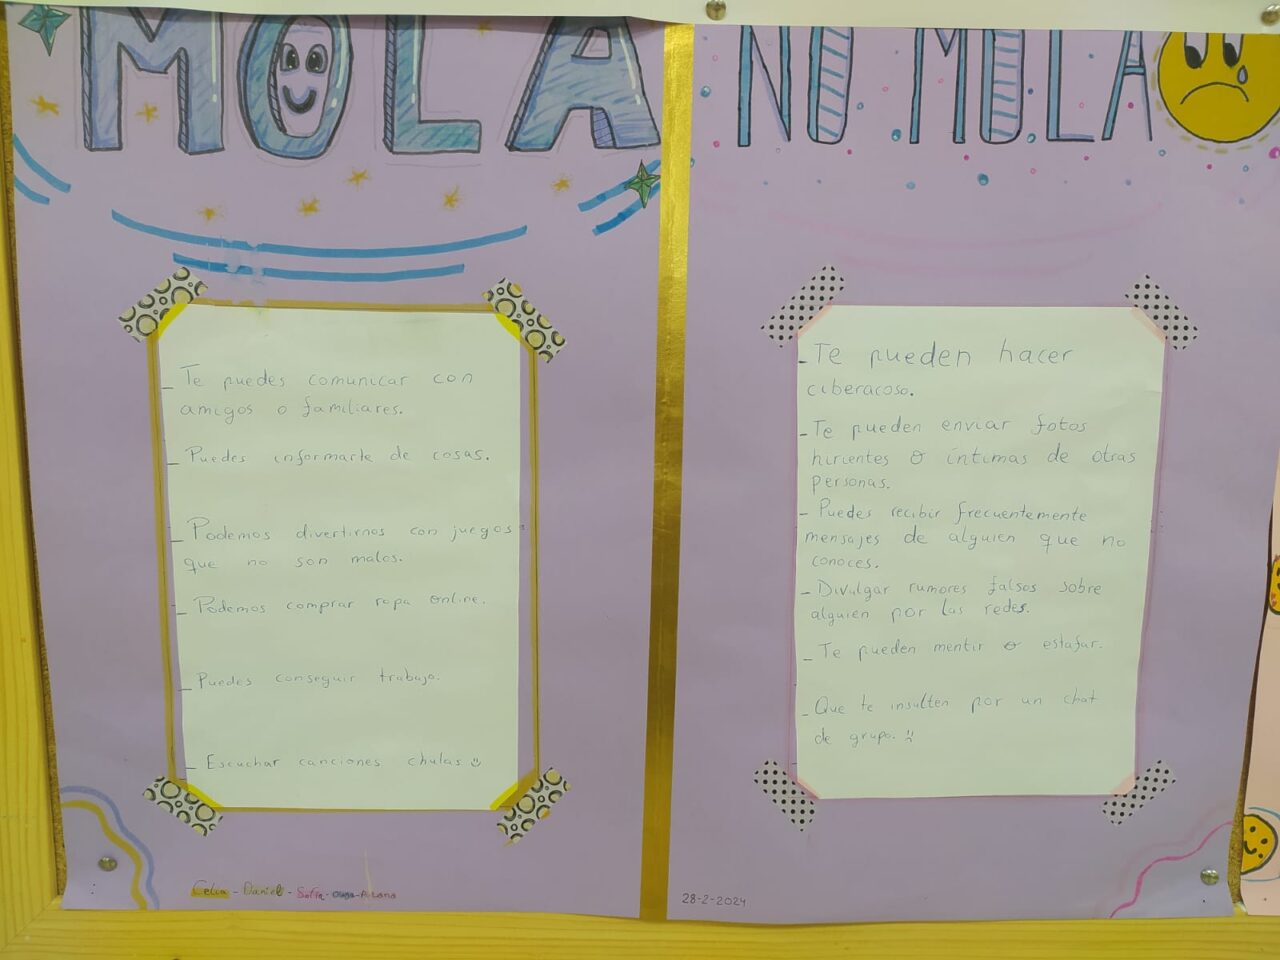 MOLA
- Te puedes comunicar con
amigos o familiares.
- Puedes informarte de cosas.
- Podemos divertirnos con juegos
que no son malos.
- Podemos comprar ropa online.
- Puedes conseguir trabajo.
- Escuchar canciones chulas
Celia - Daniel - Sofía -
NO MOLA
- Te pueden hacer
ciberacoso.
- Te pueden enviar fotos
hirientes o íntimas de otras
personas.
- Puedes recibir frecuentemente
mensajes de alguien que no
conoces.
- Divulgar rumores falsos sobre
alguien por las redes.
- Te pueden mentir o estafar.
- Que te insulten por un chat
de grupo.
28-2-2024